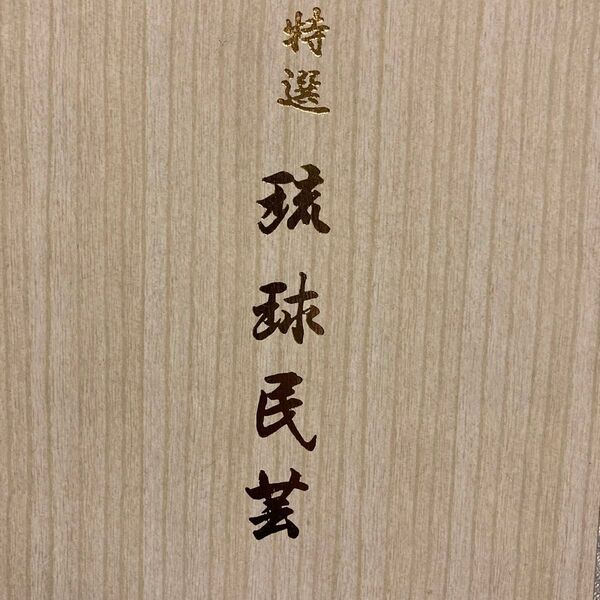 特選
琉球民芸